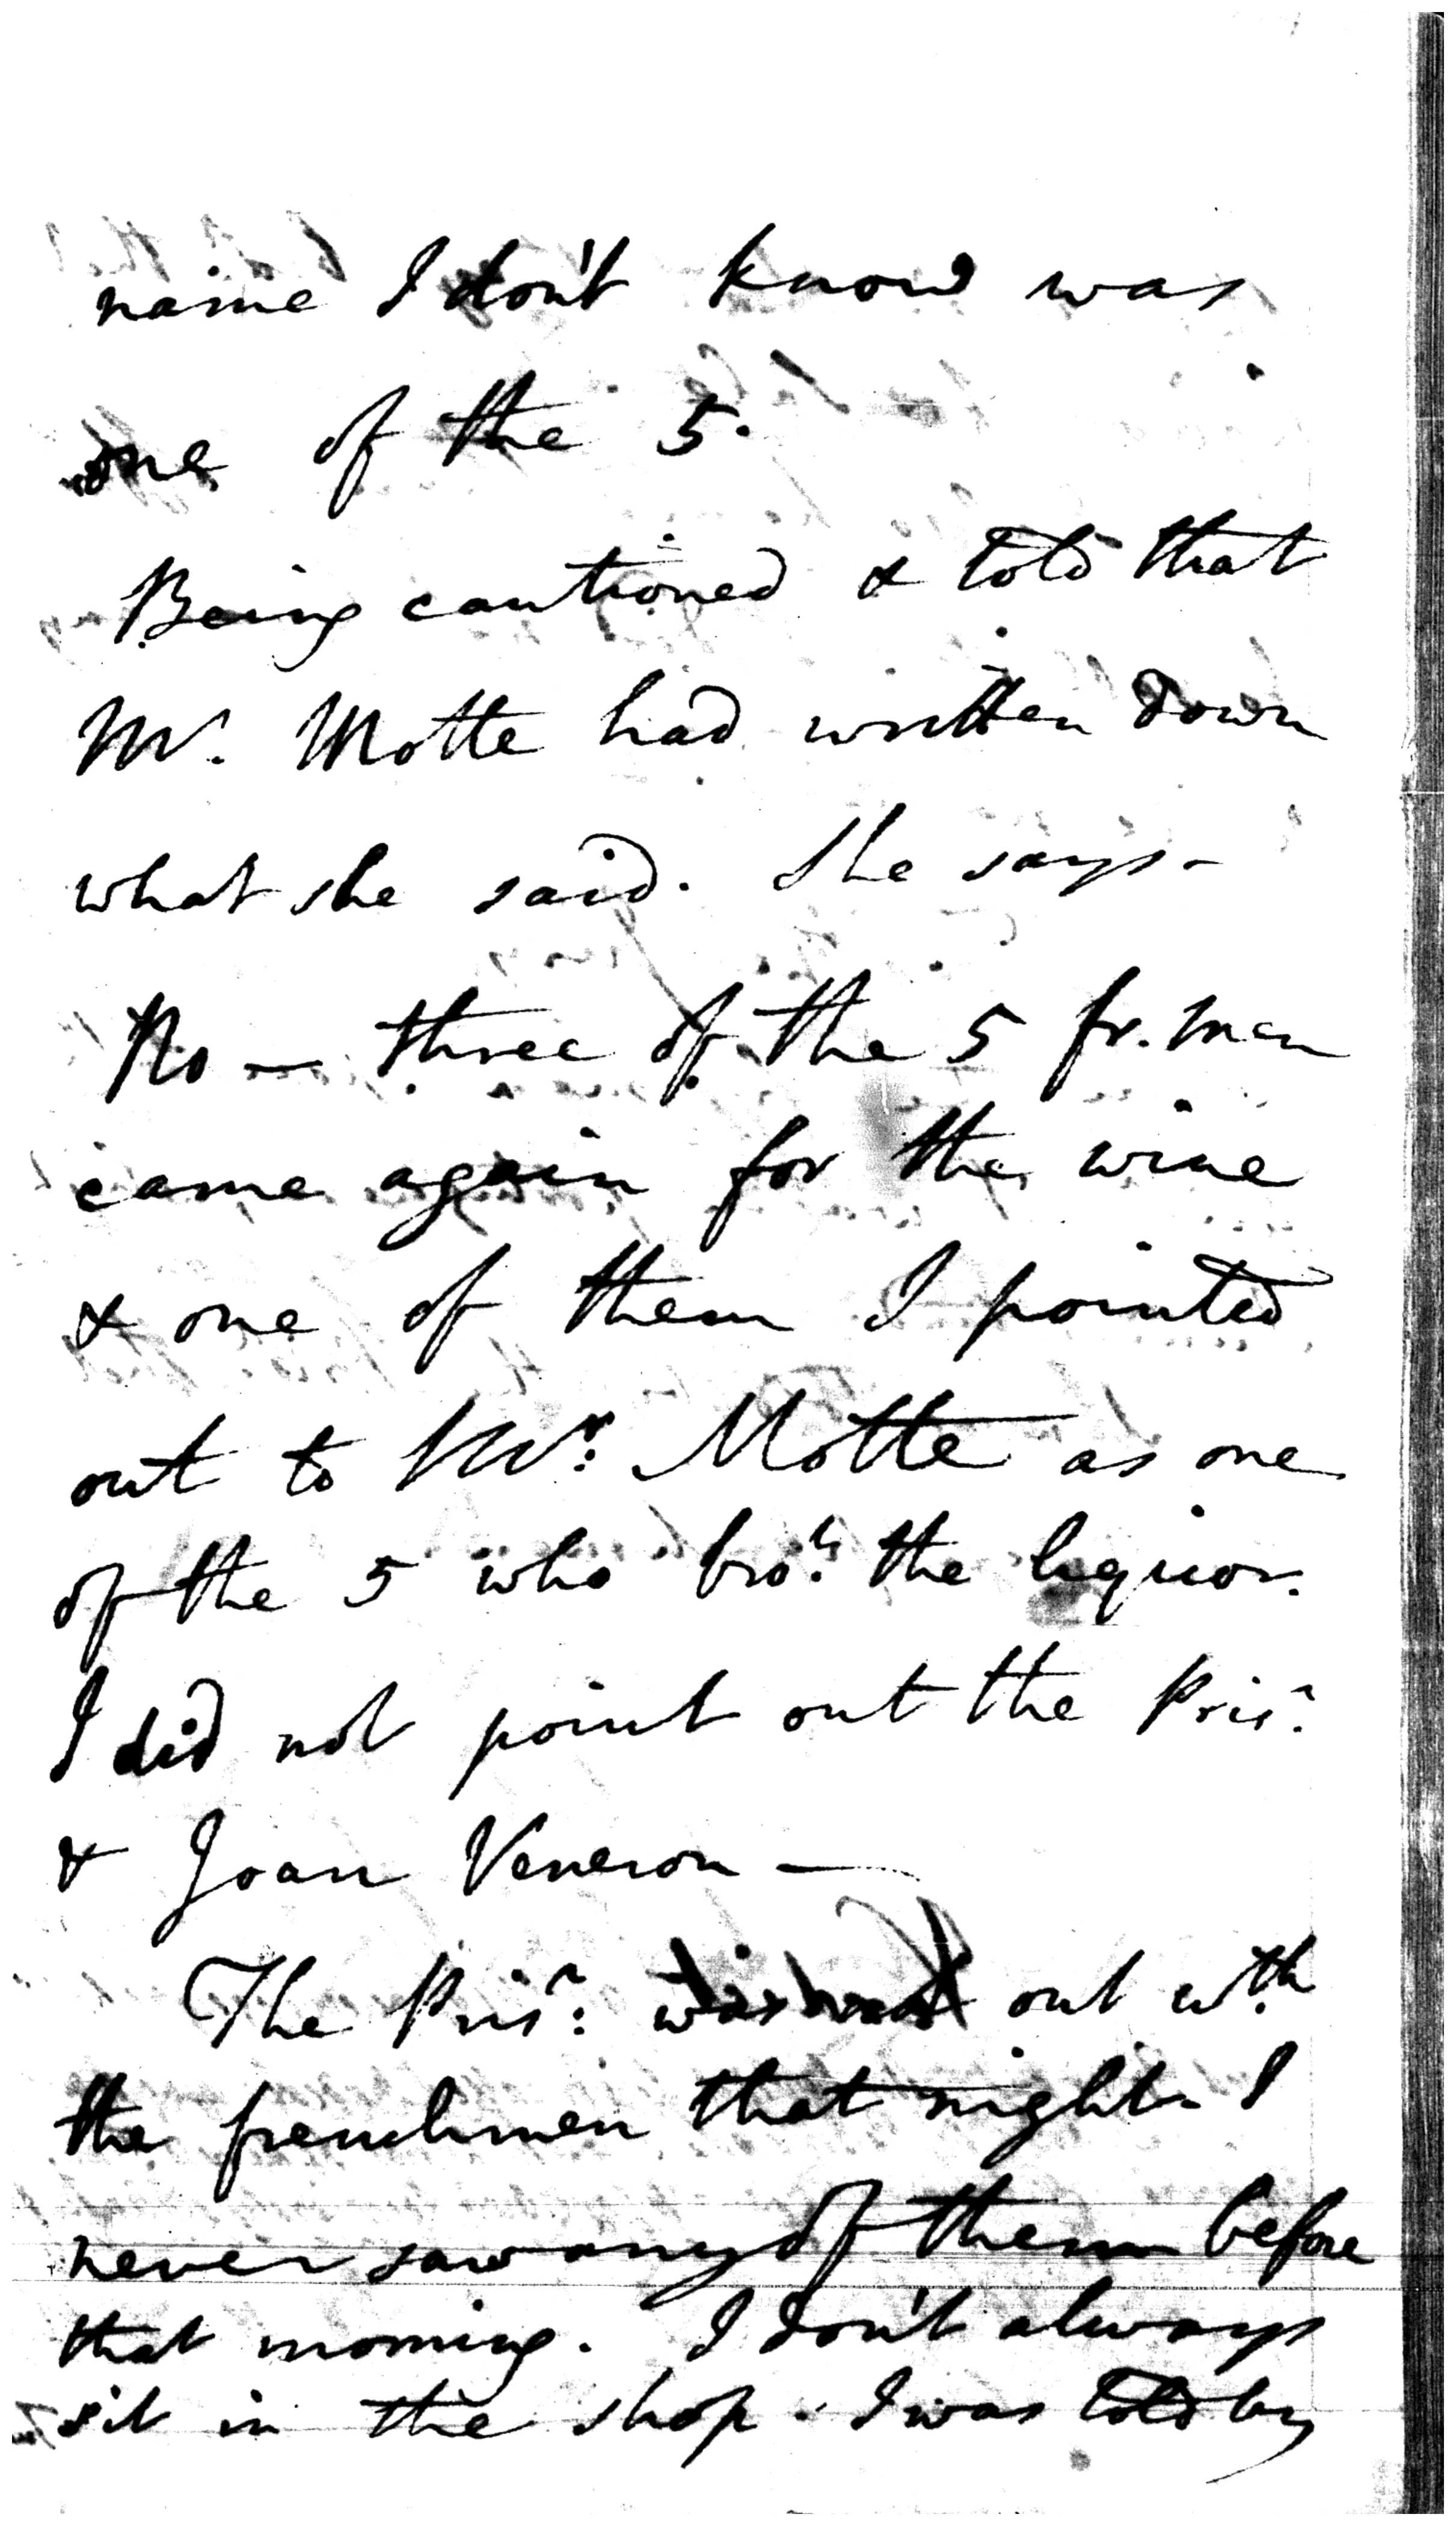 name I don't know was
one of the 5.
Being cautioned & told that
Mr. Motte had written down
what she said. She says -
No - three of the 5 fr. men
came again for the wine
& one of them I pointed
out to Mr. Motte as one
of the 5 who brot. the liquor.
I did not point out the Prisr.
& Joan Veneron —
The Prisr. out wth
the frenchmen that night. I
never saw any of them before
that morning. I don't always
sit in the shop. I was told by